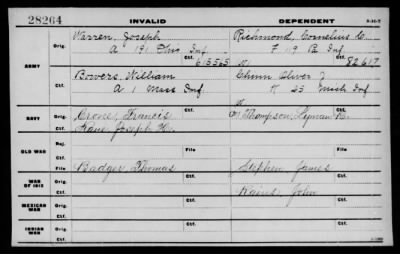 28264 INVALID DEPENDENT
Warren, Joseph Richmond, Cornelius C.
ARMY Orig. A 191 Ohio Inf F 119 Pa Inf
Ctf. 615565 Ctf. 82617
Bowers, William Chinn Oliver J
Orig. A 1 Mass Inf K 23 Mich Inf
Ctf.
NAVY Orig. Crone, Francis Thompson, Lyman K.
Ctf. Kane Joseph W.
OLD WAR Rej.
Ctf. File File
WAR OF 1812 Orig. Badger, Thomas Stephen James
Ctf. Rains, John
MEXICAN WAR Orig.
Ctf.
INDIAN WAR Orig.
Ctf.